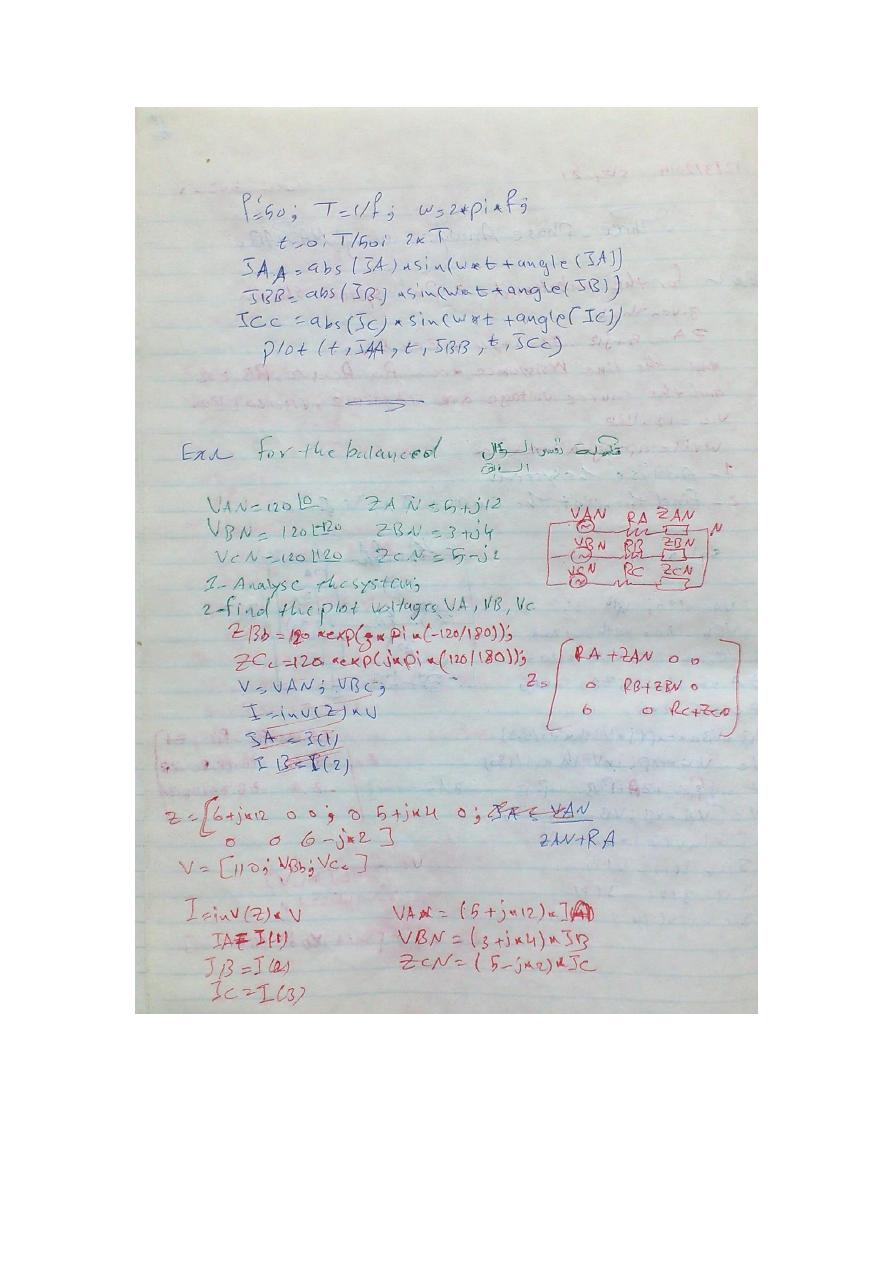 f=50; T=1/f; w=2*pi*f;
t=0:T/50: 2*T
IAA=abs(IA)*sin(w*t+angle(IA))
IBB=abs(IB)*sin(w*t+angle(IB))
ICc=abs(Ic)*sin(w*t+angle(Ic))
plot(t,IAA,t,IBB,t,ICc)
Exa For the balanced نفس السؤال
السابق
VAN=120∠0 ZAN=5+j12
VBN=120∠-120 ZBN=3+j4
VCN=120∠120 ZCN=5-j2
1-Analyse the system;
2-find the plot voltages VA, VB, Vc
VAN RA ZAN N
VBN RB ZBN
VCN RC ZCN
ZBb=120*exp(j*pi*(-120/180));
ZCc=120*exp(j*pi*(120/180));
V=VAN; VBc;
I=inv(Z)*V
IA=I(1)
IB=I(2)
Z= [RA+ZAN 0 0
0 RB+ZBN 0
0 0 RC+ZCN]
Z=[6+j*12 0 0; 0 5+j*4 0; IA=VAN
0 0 6-j*2] ZAN+RA
V=[110; VBb; VCc]
I=inv(Z)*V VAN=(5+j*12)*IA
IA=I(1) VBN=(3+j*4)*IB
IB=I(2) ZCN=(5-j*2)*Ic
Ic=I(3)